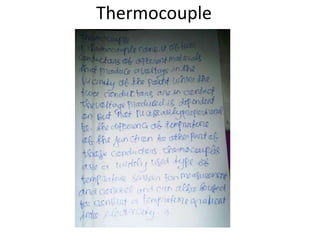 Thermocouple
Thermocouple
A thermocouple consist of two
conductors of different materials
that produce a voltage in the
vicinity of the point where the
two conductors are in contact
The voltage produced is dependent
on but not necessarily proportional
to the difference of temperature
of the junction to other part of
those conductors thermocouples
are a widely used type of
temperature sensor for measurement
and control and can also be used
to convert a temperature gradient
into electricity